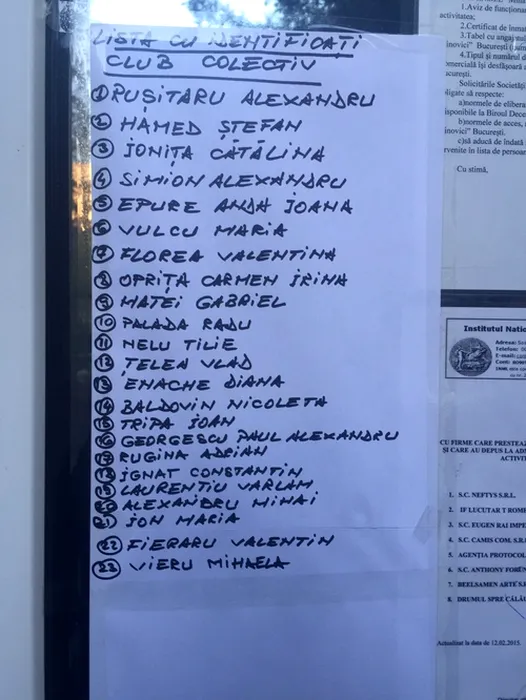 LISTA CU IDENTIFICAȚI
CLUB COLECTIV
1 RUȘITARU ALEXANDRU
2 HAMED ȘTEFAN
3 IONIȚA CĂTĂLINA
4 SIMION ALEXANDRU
5 EPURE ANDA IOANA
6 VULCU MARIA
7 FLOREA VALENTINA
8 OPRIȚA CARMEN IRINA
9 MATEI GABRIEL
10 PALADA RADU
11 NELU TILIE
12 ȚELEA VLAD
13 ENACHE DIANA
14 BALDOVIN NICOLETA
15 TRIPA IOAN
16 GEORGESCU PAUL ALEXANDRU
17 RUGINA ADRIAN
18 IGNAT CONSTANTIN
19 LAURENTIU VARLAM
20 ALEXANDRU MIHAI
21 ION MARIA
22 FIERARU VALENTIN
23 VIERU MIHAELA
1.Aviz de funcționa
activitatea;
2.Certificat de înmat
3.Tabel cu angaj
inovici" București
4.Tipul și numărul d
mercială își desfășoară
ucurești.
Solicitările Societăți
ligate să respecte:
a)normele de elibera
isponibile la Biroul Dece
b)normele de acces,
inovici" București.
c)să aducă de îndată
rvenite în lista de persoa
Cu stimă,
Institutul Națio
Adresa:
Telefon:
CU FIRME CARE PRESTEA
ȘI CARE AU DEPUS LA AD
ACTIVIT
1. S.C. NEFTYS S.R.L.
2. IF LUCUTAR T ROME
3. S.C. EUGEN RAI IMPE
4. S.C. CAMIS COM. S.R.
5. AGENȚIA PROTOCOL
6. S.C. ANTHONY FORÈN
7. BEELSAMEN ARTE S.R
8. DRUMUL SPRE CĂLĂU
Actualizat la data de 12.02.2015.